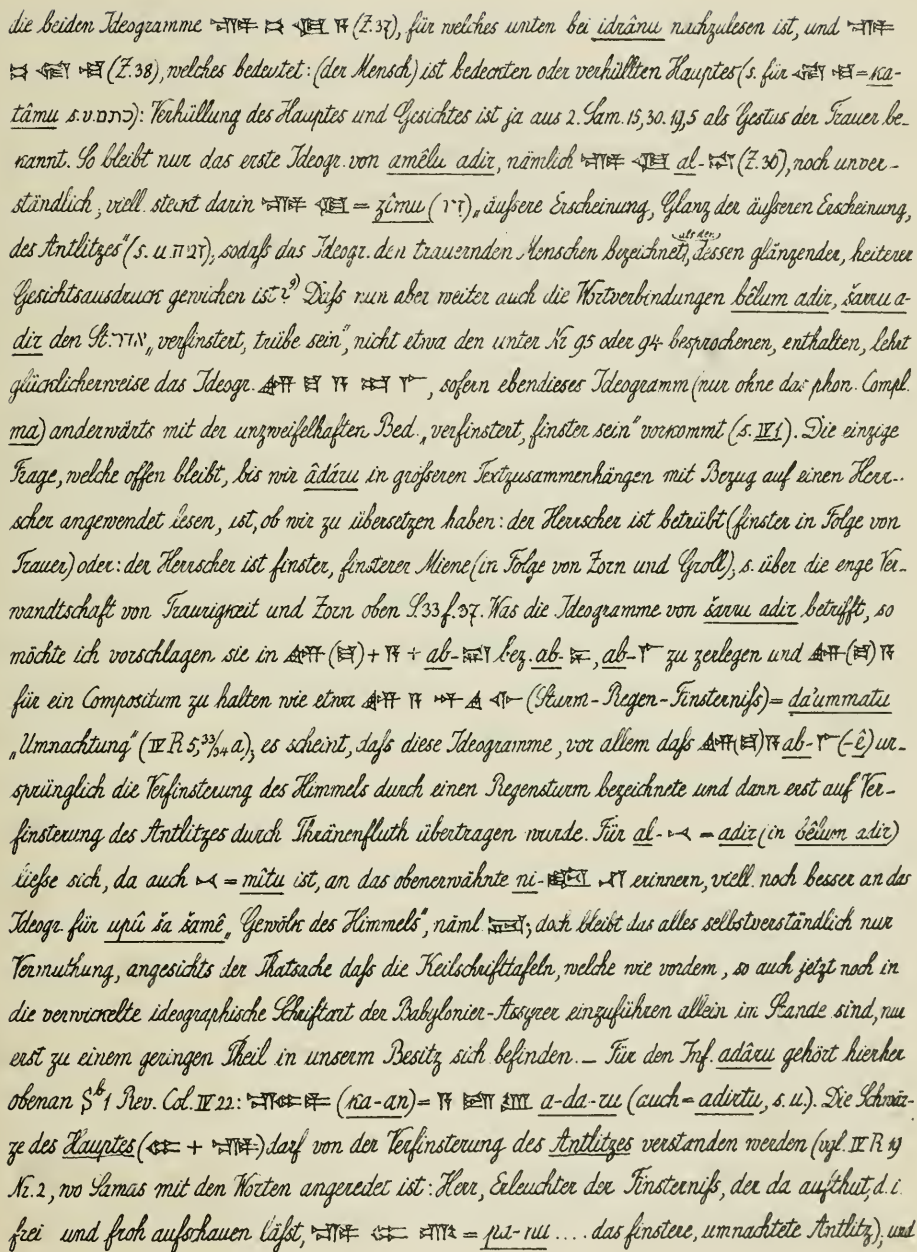 die beiden Ideogramme (Z.37), für welches unten bei idrânu nachzulesen ist, und
(Z.38), welches bedeutet: (der Mensch) ist bedeckten oder verhüllten Hauptes (s. für = ka-
tâmu s.v. כתם): Verhüllung des Hauptes und Gesichtes ist ja aus 2. Sam. 15,30. 19,5 als Gestus der Trauer be-
kannt. So bleibt nur das erste Ideogr. von amêlu adir, nämlich al- (Z.36), noch unver-
ständlich; viell. steckt darin = zîmu „äußere Erscheinung, Glanz der äußeren Erscheinung,
des Antlitzes“ (s. u. ), sodaß das Ideogr. den trauernden Menschen bezeichnet, als den, dessen glänzender, heiterer
Gesichtsausdruck gewichen ist? Daß nun aber weiter auch die Wortverbindungen bêlum adir, šarru a-
dir den St. אדר „verfinstert, trübe sein“, nicht etwa den unter Nr 95 oder 94 besprochenen, enthalten, lehrt
glücklicherweise das Ideogr. , sofern ebendieses Ideogramm (nur ohne das phon. Compl.
ma) anderwärts mit der unzweifelhaften Bed. „verfinstert, finster sein“ vorkommt (s. IV 1). Die einzige
Frage, welche offen bleibt, bis wir âdáru in größeren Textzusammenhängen mit Bezug auf einen Herr-
scher angewendet lesen, ist, ob wir zu übersetzen haben: der Herrscher ist betrübt (finster in Folge von
Trauer) oder: der Herrscher ist finster, finsterer Miene (in Folge von Zorn und Groll); s. über die enge Ver-
wandtschaft von Traurigkeit und Zorn oben S.33 f. 37. Was die Ideogramme von šarru adir betrifft, so
möchte ich vorschlagen sie in + + ab- bez. ab- , ab- zu zerlegen und
für ein Compositum zu halten wie etwa (Sturm-Regen-Finsterniß) = da'ummatu
„Umnachtung“ (IV R 5, 33/34 a); es scheint, daß diese Ideogramme, vor allem daß ab- (-ê) ur-
sprünglich die Verfinsterung des Himmels durch einen Regensturm bezeichnete und dann erst auf Ver-
finsterung des Antlitzes durch Thränenfluth übertragen wurde. Für al- = adir (in bêlum adir)
ließe sich, da auch = mîtu ist, an das obenerwähnte ni- erinnern, viell. noch besser an das
Ideogr. für upû ša šamê „Gewölk des Himmels“, näml. ; doch bleibt das alles selbstverständlich nur
Vermuthung, angesichts der Thatsache daß die Keilschrifttafeln, welche wie vordem, so auch jetzt noch in
die verwickelte ideographische Schriftart der Babylonier-Assyrer einzuführen allein im Stande sind, nur
erst zu einem geringen Theil in unserm Besitz sich befinden. – Für den Inf. adâru gehört hierher
obenan Sᵇ 1 Rev. Col. IV 22: (ka-an) = a-da-ru (auch = adirtu, s. u.). Die Schwär-
ze des Hauptes ( + ) darf von der Verfinsterung des Antlitzes verstanden werden (vgl. IV R 19
Nr. 2, wo Samas mit den Worten angeredet ist: Herr, Erleuchter der Finsterniß, der da aufthut, d. i.
frei und froh aufschauen läßt, = pa-nu .... das finstere, umnachtete Antlitz), und